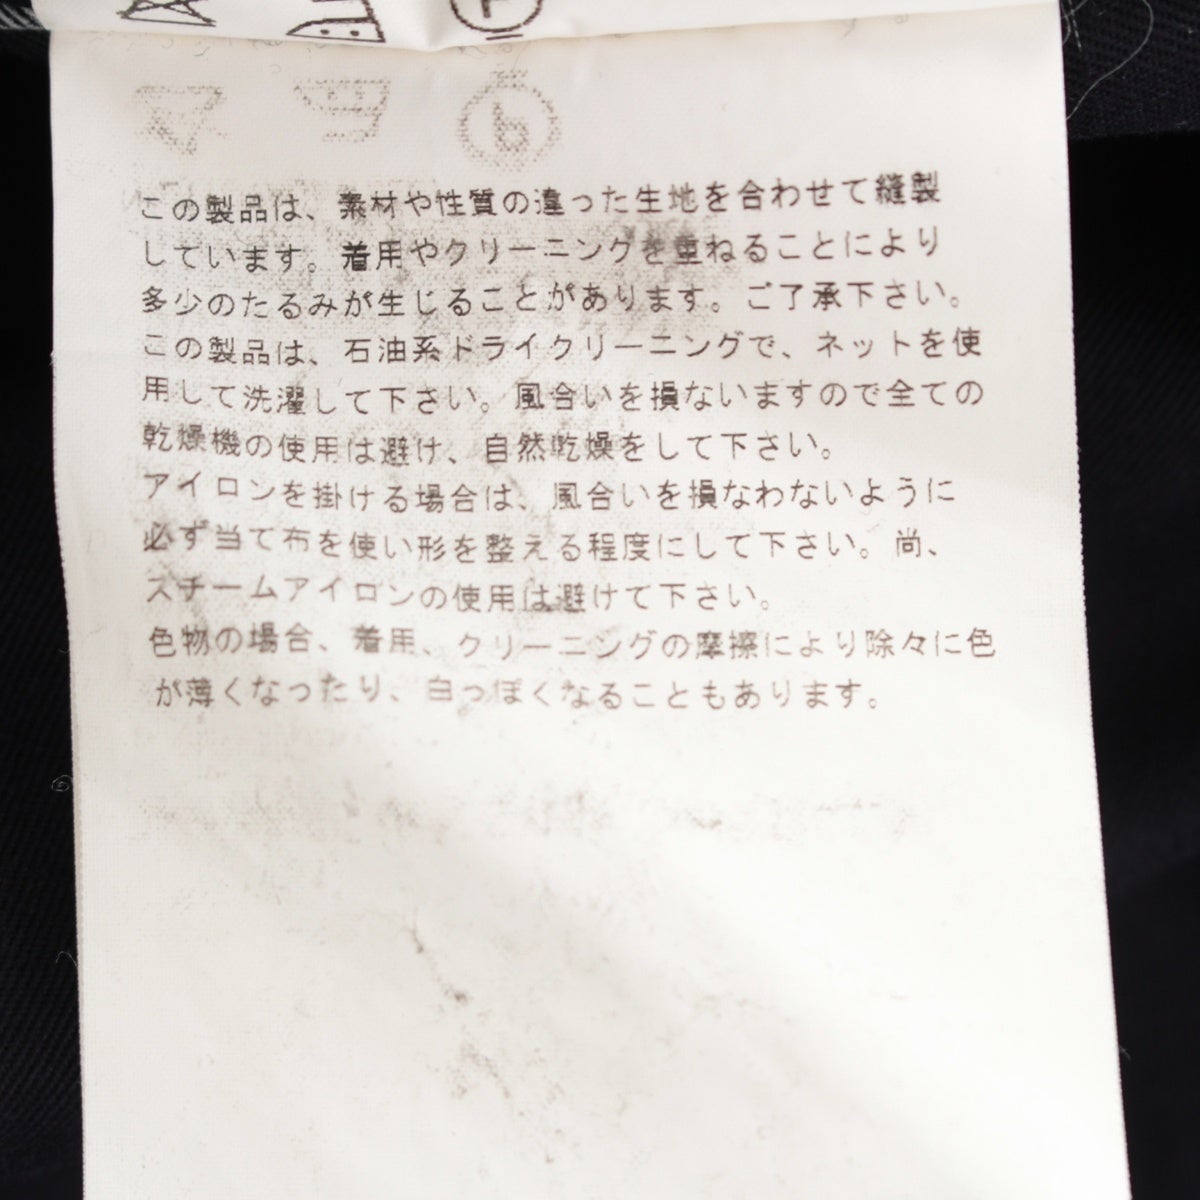 この製品は、素材や性質の違った生地を合わせて縫製
しています。着用やクリーニングを重ねることにより
多少のたるみが生じることがあります。ご了承下さい。
この製品は、石油系ドライクリーニングで、ネットを使
用して洗濯して下さい。風合いを損ないますので全ての
乾燥機の使用は避け、自然乾燥をして下さい。
アイロンを掛ける場合は、風合いを損なわないように
必ず当て布を使い形を整える程度にして下さい。尚、
スチームアイロンの使用は避けて下さい。
色物の場合、着用、クリーニングの摩擦により除々に色
が薄くなったり、白っぽくなることもあります。